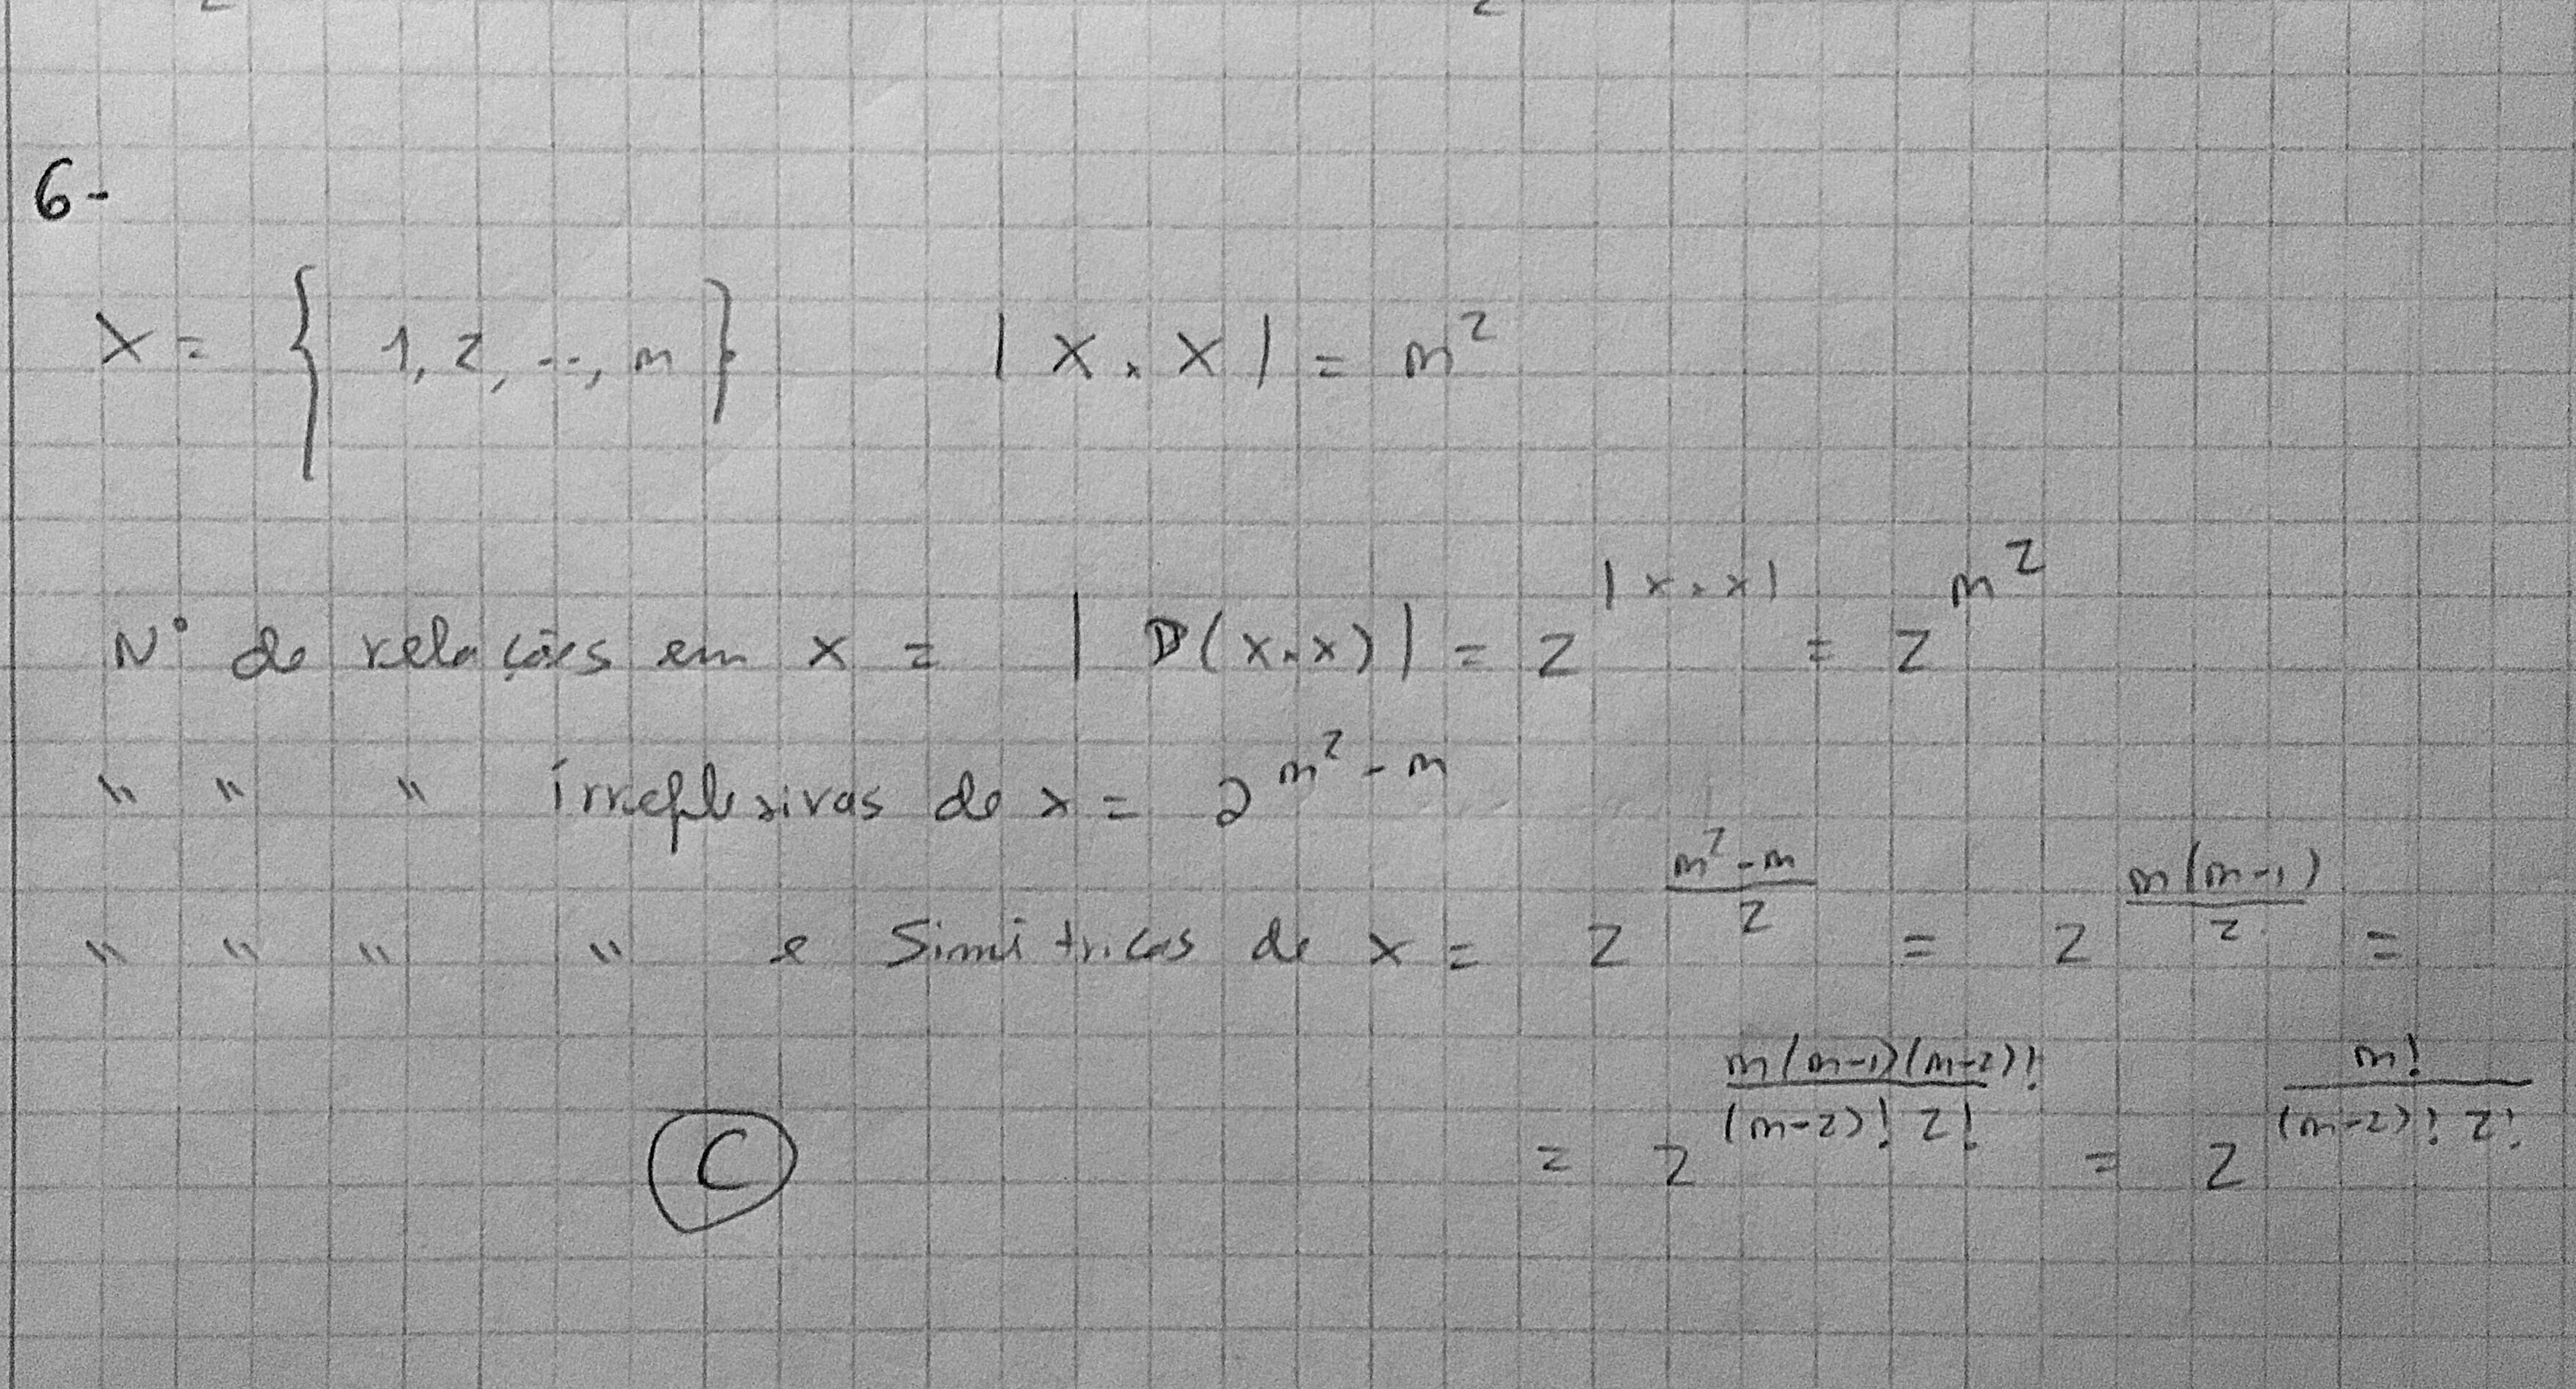 6-
X = { 1, 2, ..., m }   | X × X | = m²
Nº de relações em X = | P(X×X) | = 2^|X×X| = 2^m²
" " " irreflexivas de X = 2^(m² - m)
" " " " e Simétricas de X = 2^((m² - m)/2) = 2^(m(m-1)/2) =
= 2^(m(m-1)(m-2)!/((m-2)! 2!)) = 2^(m!/((m-2)! 2!))
C